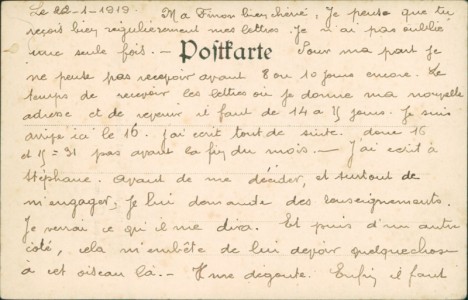 Le 22-1-1919. Ma Simon bien chérie, Je pense que tu
reçois bien régulièrement mes lettres. Je n'ai pas oublié
une seule fois. — Pour ma part je
Postkarte
ne pense pas recevoir avant 8 ou 10 jours encore. Le
temps de recevoir les lettres où je donne ma nouvelle
adresse et de revenir il faut de 14 a 15 jours. Je suis
arrivé ici le 16. J'ai écrit tout de suite. donc 16
et 15 = 31 pas avant la fin du mois. — J'ai écrit à
Stéphane. Avant de me décider, et surtout de
m'engager, je lui demande des renseignements.
Je verrai ce qu'il me dira. Et puis d'un autre
côté, cela m'embête de lui devoir quelquechose
à cet oiseau là. — Il me dégoute. Enfin il faut